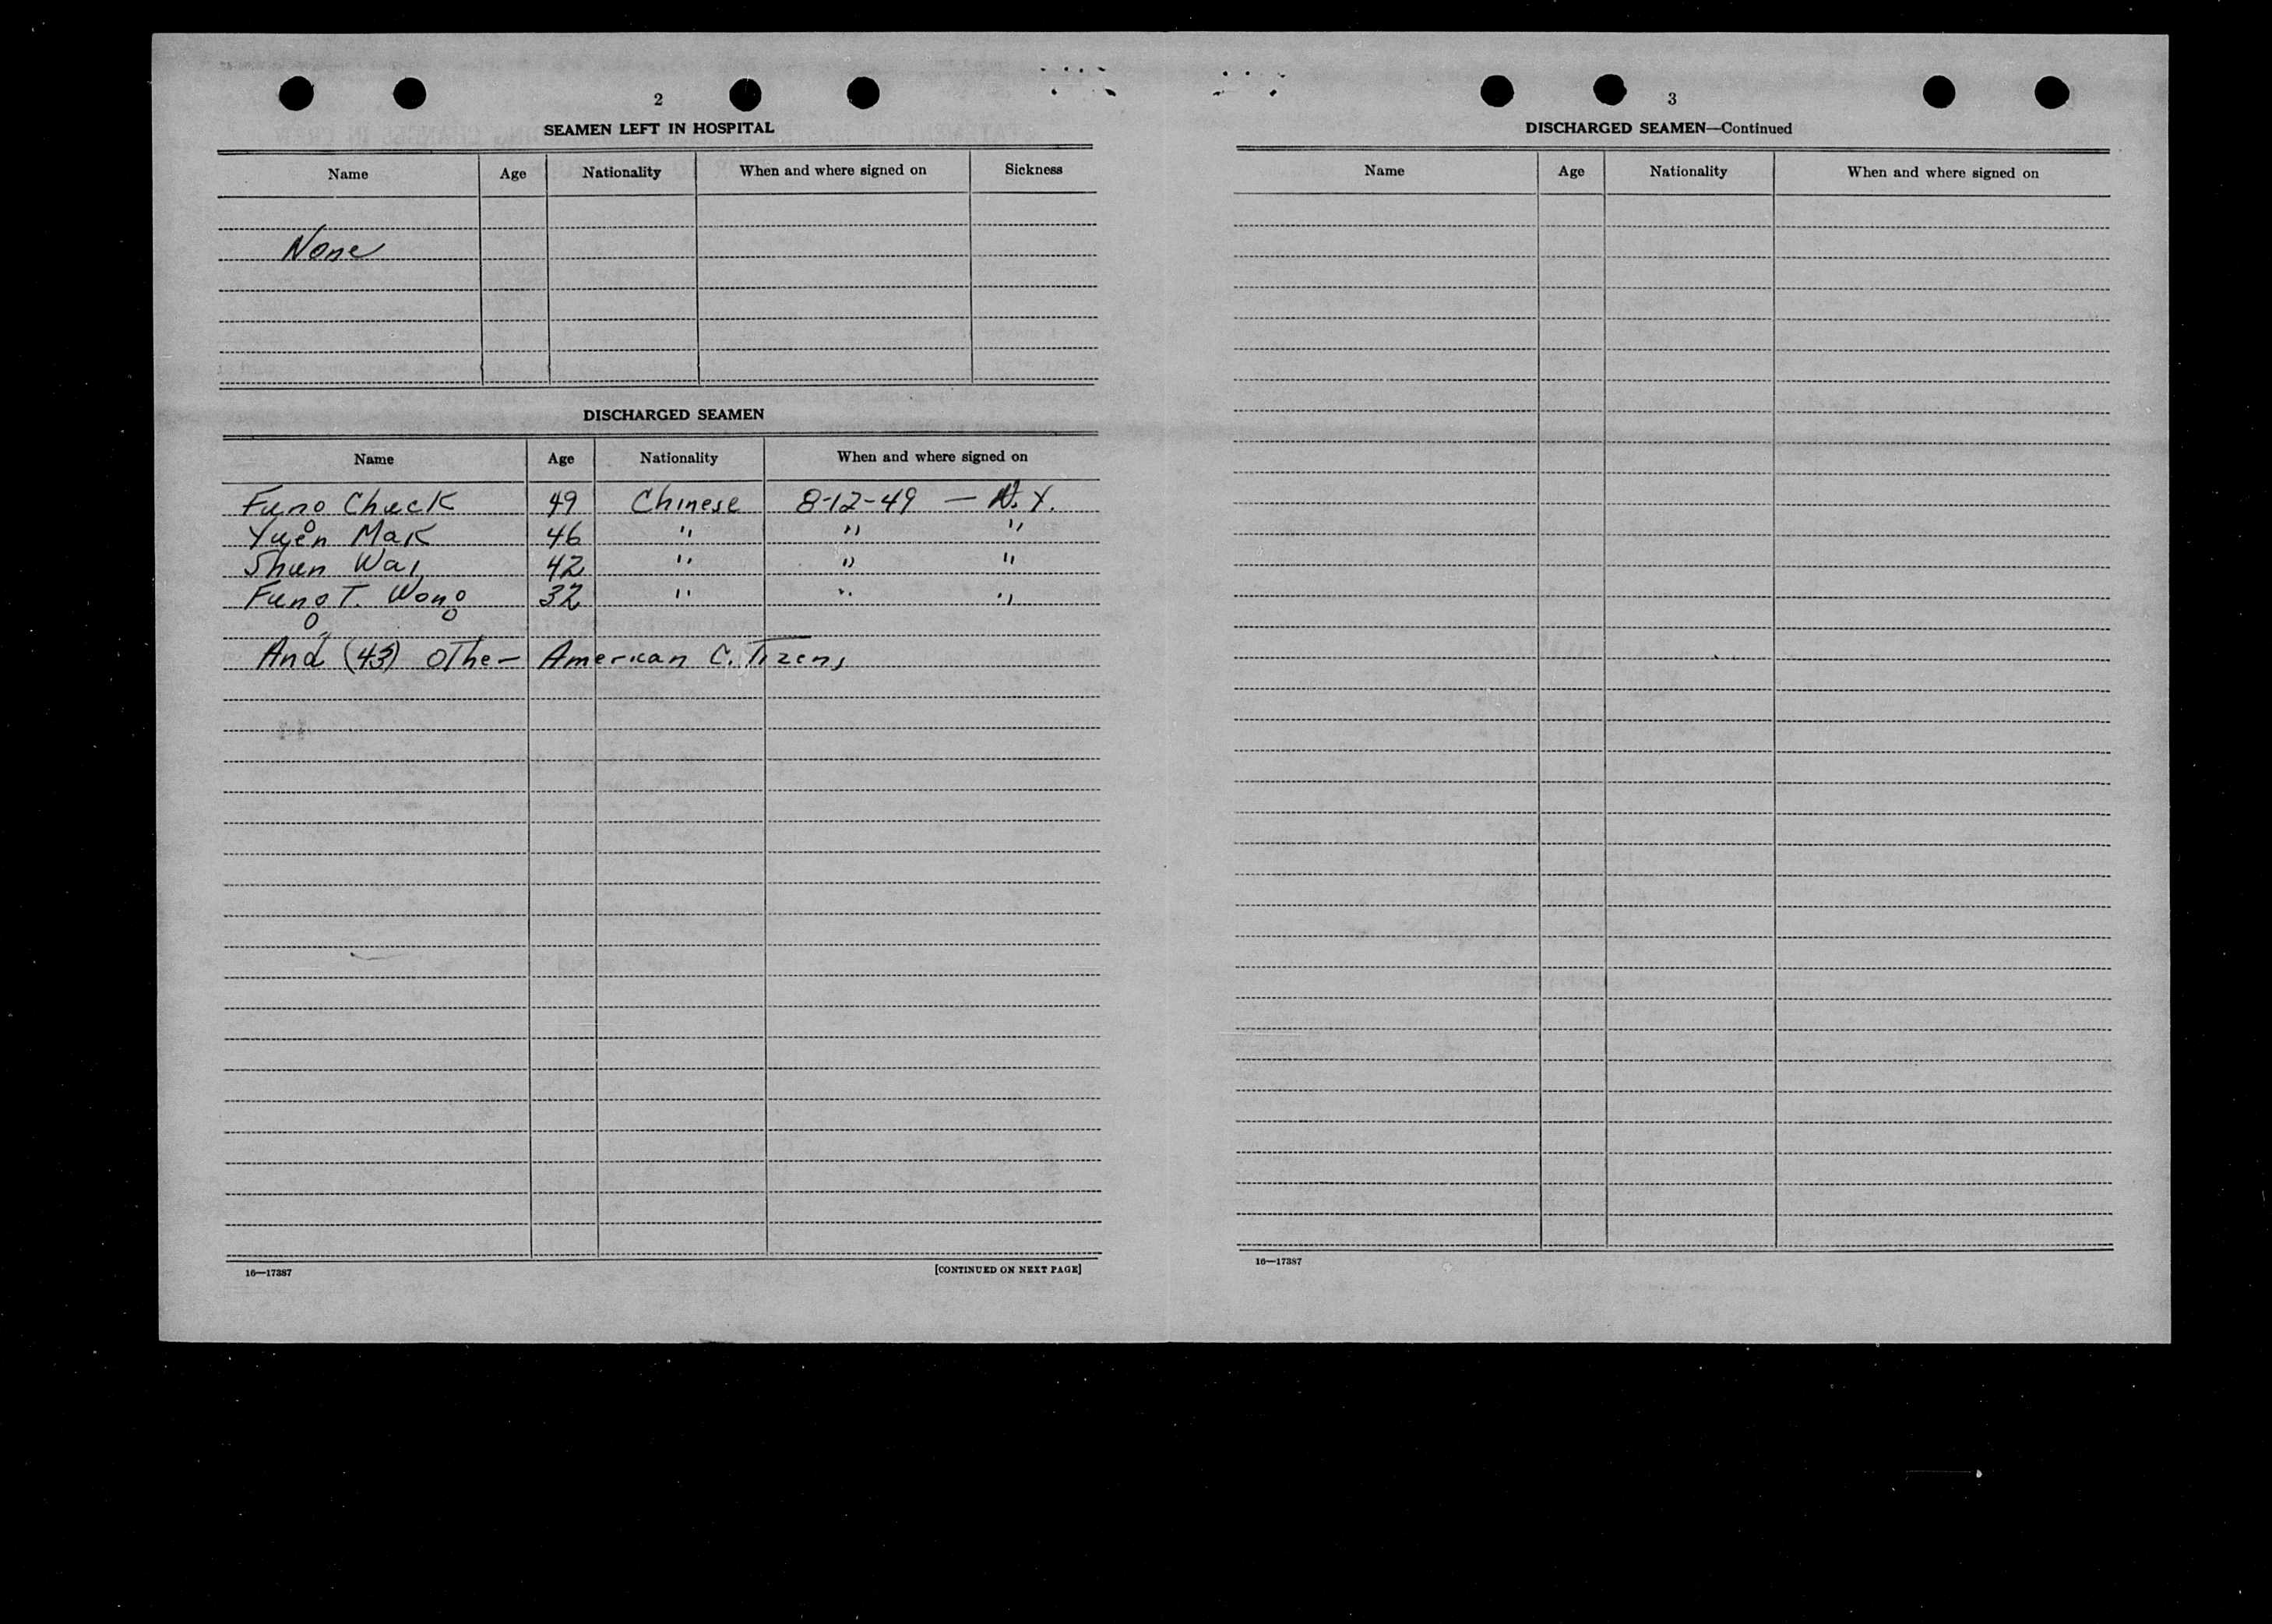 2
SEAMEN LEFT IN HOSPITAL
Name Age Nationality When and where signed on Sickness
None
DISCHARGED SEAMEN
Name Age Nationality When and where signed on
Fung Chuck 49 Chinese 8-12-49 — N.Y.
Yuen Mak 46 " " "
Shun Wai 42 " " "
Fung T. Wong 32 " " "
And (43) Other American Citizens
16—17387 [CONTINUED ON NEXT PAGE]
3
DISCHARGED SEAMEN—Continued
Name Age Nationality When and where signed on
16—17387